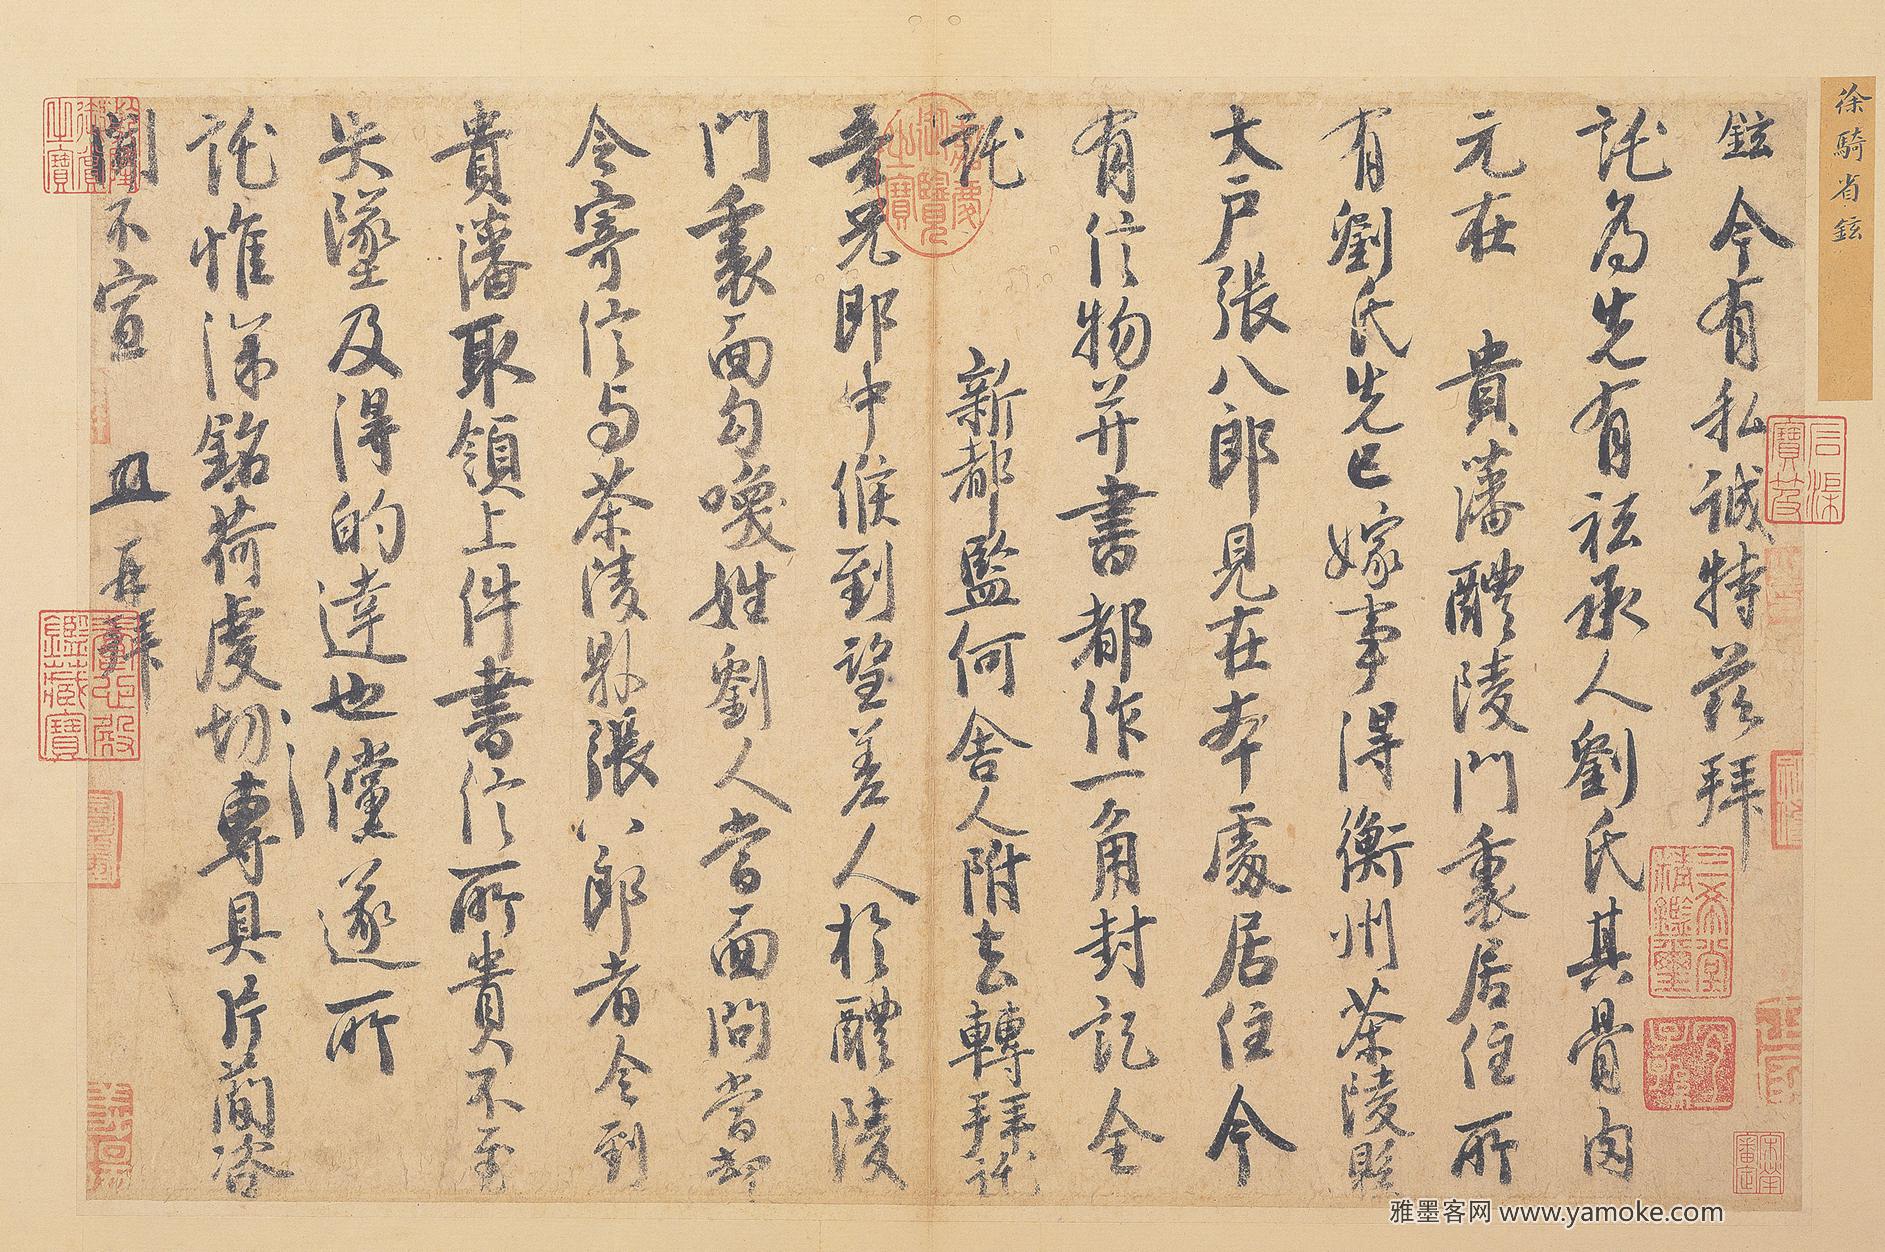 徐騎省鉉
鉉今有私誠特茲拜
託為先有祗承人劉氏其骨肉
元在 貴藩醴陵門裏居住所
有劉氏先已嫁事得衡州茶陵縣
大戶張八郎見在本處居住今
有信物并書都作一角封記全
託 新都監何舍人附去轉拜託
吾兄郎中候到望差人於醴陵
門裏面勾喚姓劉人當面問當却
令寄信与茶陵縣張八郎者令到
貴藩取領上件書信所貴不至
失墜及得的達也儻遂所
託惟深銘荷虔切專具片簡咨
聞不宣 再拜
石渠寶笈
三希堂精鑑璽
宜子孫
嘉慶御覽之寶
養心殿鑑藏寶
雅墨客网 www.yamoke.com